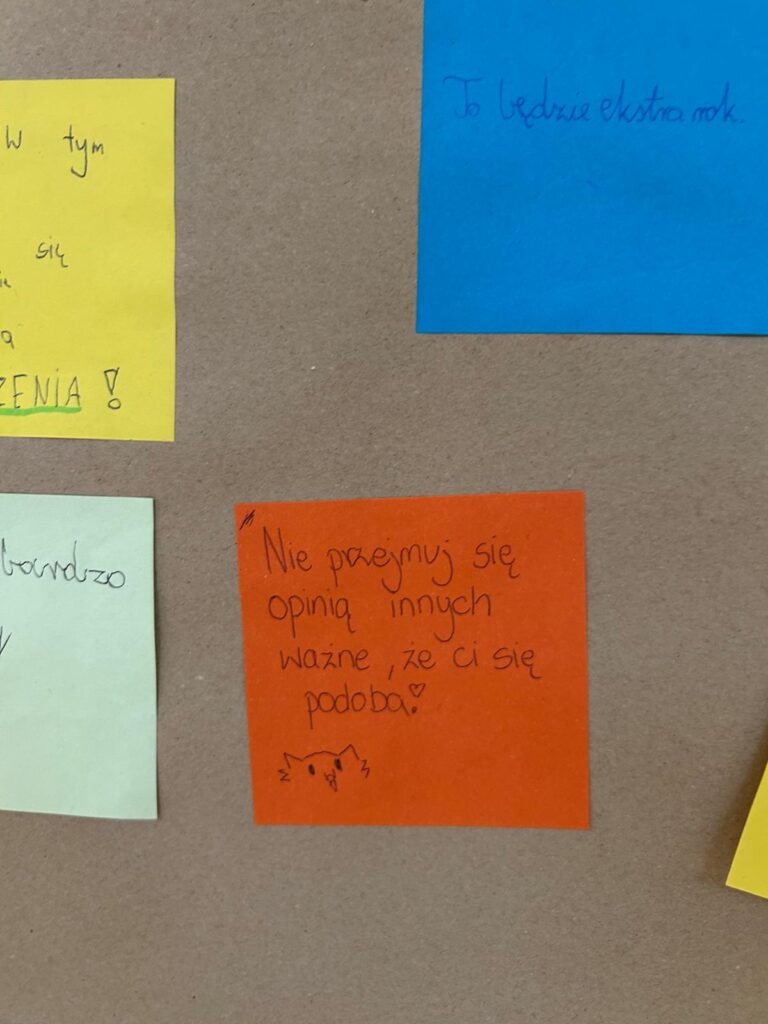 W tym
się
ZENIA!
To będzie ekstra rok.
bardzo
Nie przejmuj się
opinią innych
ważne, że ci się
podoba!